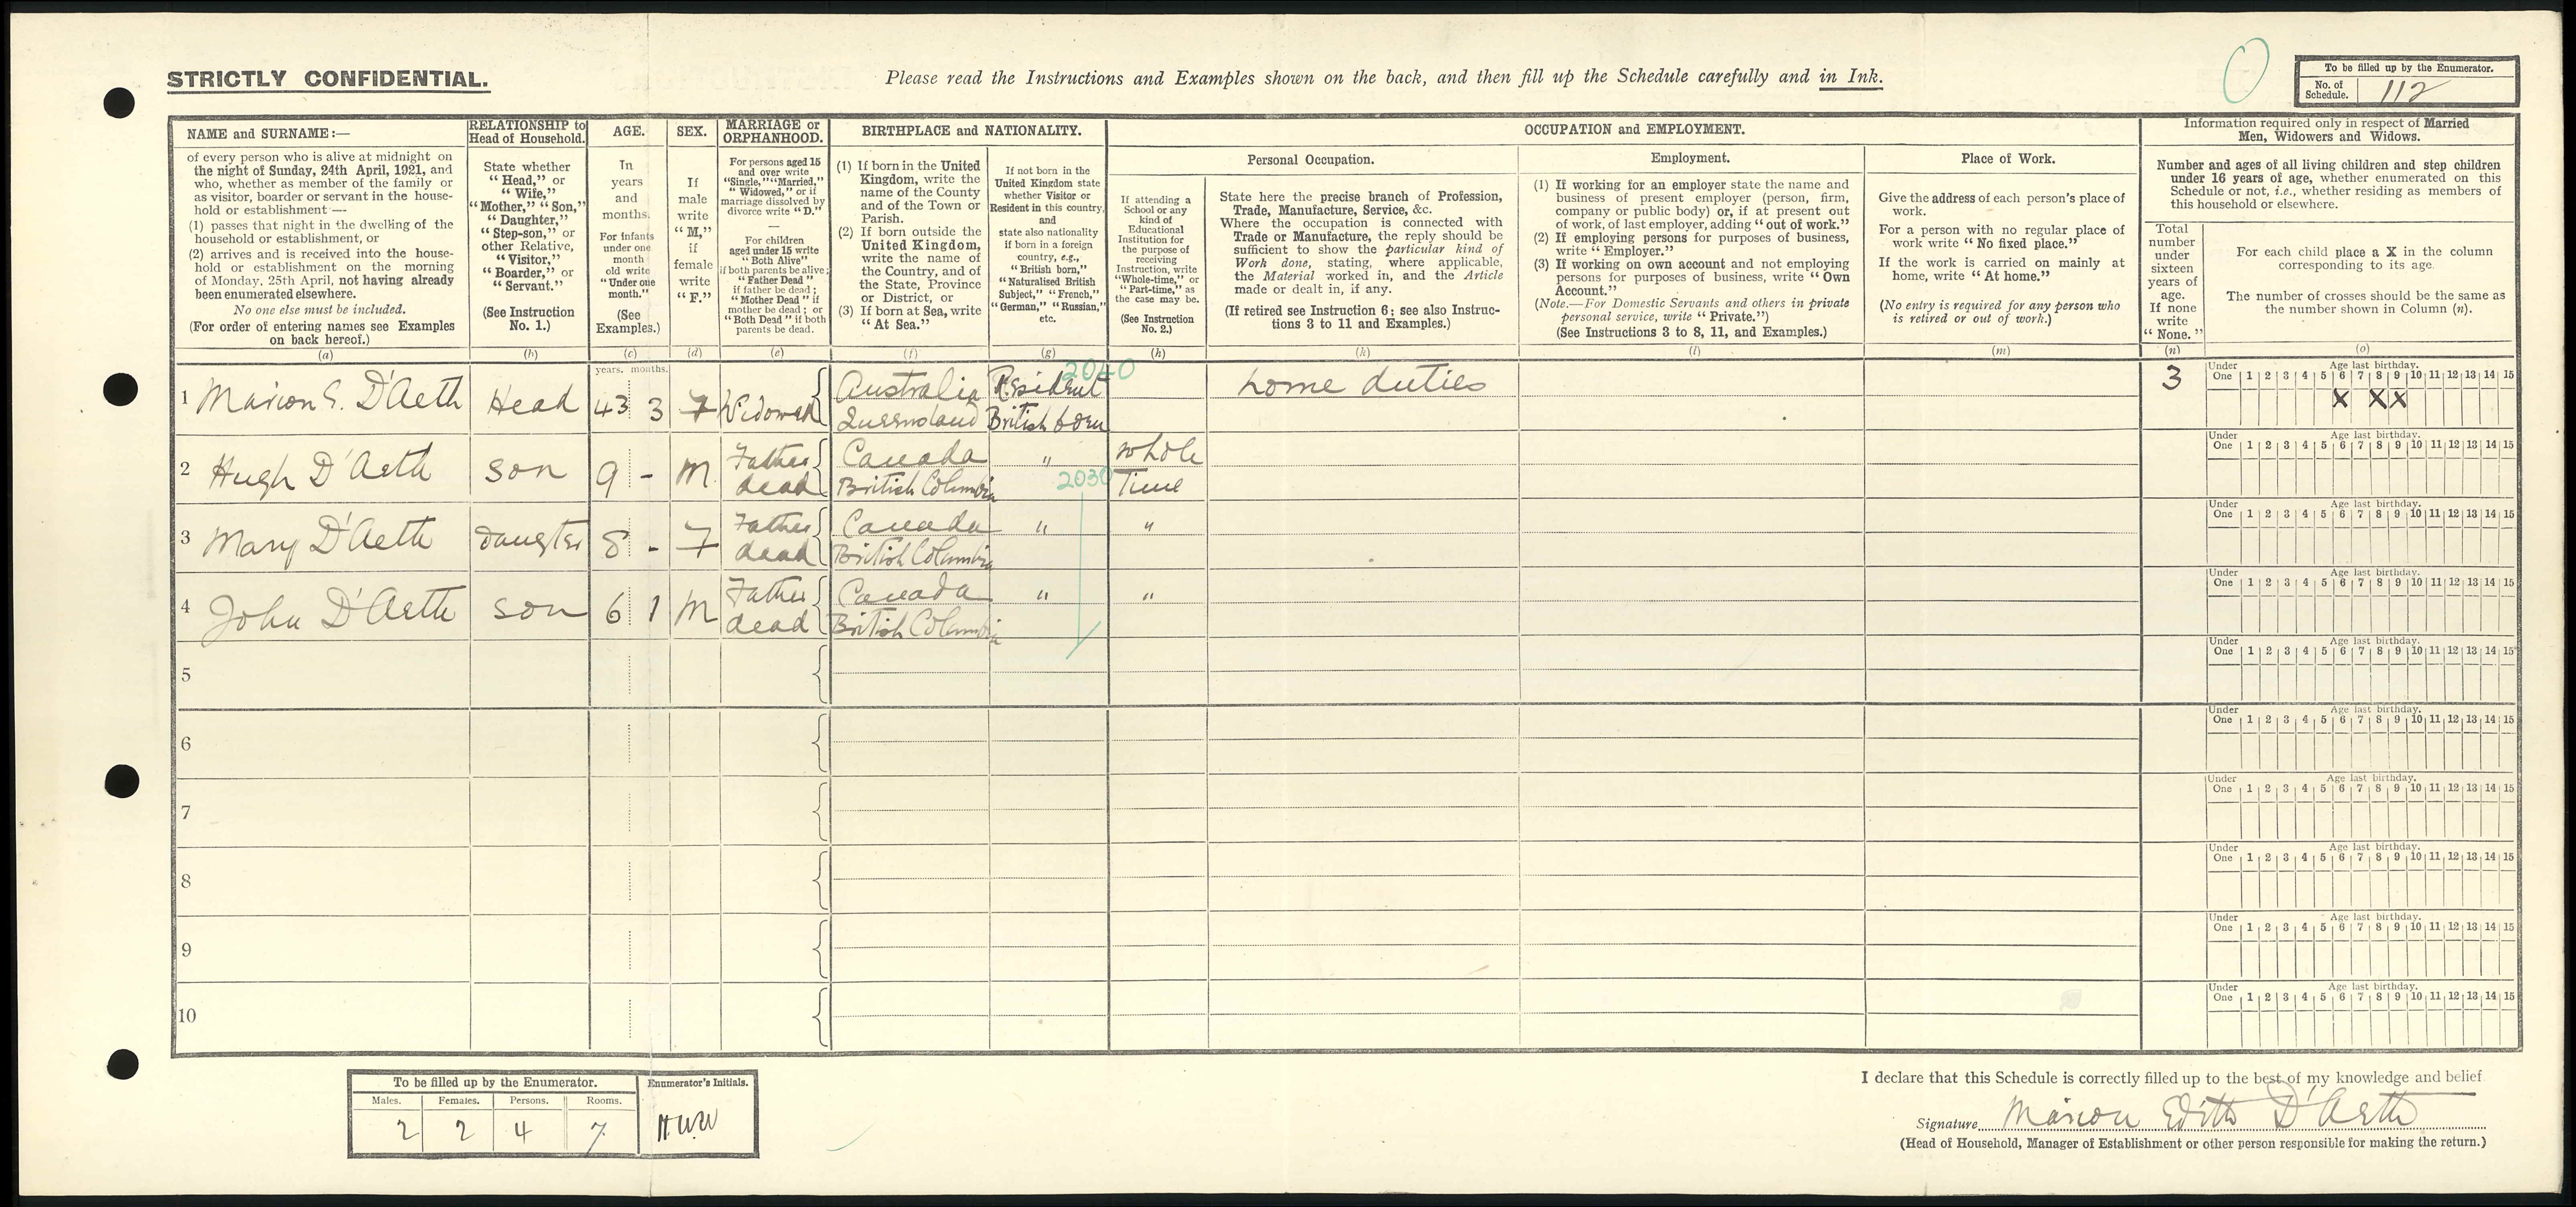 STRICTLY CONFIDENTIAL.
Please read the Instructions and Examples shown on the back, and then fill up the Schedule carefully and in Ink.
To be filled up by the Enumerator.
No. of Schedule. 112
NAME and SURNAME:—
of every person who is alive at midnight on
the night of Sunday, 24th April, 1921, and
who, whether as member of the family or
as visitor, boarder or servant in the house-
hold or establishment —
(1) passes that night in the dwelling of the
household or establishment, or
(2) arrives and is received into the house-
hold or establishment on the morning
of Monday, 25th April, not having already
been enumerated elsewhere.
No one else must be included.
(For order of entering names see Examples
on back hereof.)
(a)
RELATIONSHIP to
Head of Household.
State whether
"Head," or
"Wife,"
"Mother," "Son,"
"Daughter,"
"Step-son," or
other Relative,
"Visitor,"
"Boarder," or
"Servant."
(See Instruction
No. 1.)
(b)
AGE.
In
years
and
months.
For infants
under one
month
old write
"Under one
month."
(See
Examples.)
(c)
SEX.
If
male
write
"M,"
if
female
write
"F."
(d)
MARRIAGE or
ORPHANHOOD.
For persons aged 15
and over write
"Single," "Married,"
"Widowed," or if
marriage dissolved by
divorce write "D."
—
For children
aged under 15 write
"Both Alive"
if both parents be alive;
"Father Dead"
if father be dead;
"Mother Dead" if
mother be dead; or
"Both Dead" if both
parents be dead.
(e)
BIRTHPLACE and NATIONALITY.
(1) If born in the United
Kingdom, write the
name of the County
and of the Town or
Parish.
(2) If born outside the
United Kingdom,
write the name of
the Country, and of
the State, Province
or District, or
(3) If born at Sea, write
"At Sea."
(f)
If not born in the
United Kingdom state
whether Visitor or
Resident in this country,
and
state also nationality
if born in a foreign
country, e.g.,
"British born,"
"Naturalised British
Subject," "French,"
"German," "Russian,"
etc.
(g)
OCCUPATION and EMPLOYMENT.
If attending a
School or any
kind of
Educational
Institution for
the purpose of
receiving
Instruction, write
"Whole-time," or
"Part-time," as
the case may be.
(See Instruction
No. 2.)
(h)
Personal Occupation.
State here the precise branch of Profession,
Trade, Manufacture, Service, &c.
Where the occupation is connected with
Trade or Manufacture, the reply should be
sufficient to show the particular kind of
Work done, stating, where applicable,
the Material worked in, and the Article
made or dealt in, if any.
(If retired see Instruction 6; see also Instruc-
tions 3 to 11 and Examples.)
(k)
Employment.
(1) If working for an employer state the name and
business of present employer (person, firm,
company or public body) or, if at present out
of work, of last employer, adding "out of work."
(2) If employing persons for purposes of business,
write "Employer."
(3) If working on own account and not employing
persons for purposes of business, write "Own
Account."
(Note.—For Domestic Servants and others in private
personal service, write "Private.")
(See Instructions 3 to 8, 11, and Examples.)
(l)
Place of Work.
Give the address of each person's place of
work.
For a person with no regular place of
work write "No fixed place."
If the work is carried on mainly at
home, write "At home."
(No entry is required for any person who
is retired or out of work.)
(m)
Information required only in respect of Married
Men, Widowers and Widows.
Number and ages of all living children and step children
under 16 years of age, whether enumerated on this
Schedule or not, i.e., whether residing as members of
this household or elsewhere.
Total
number
under
sixteen
years of
age.
If none
write
"None."
(n)
For each child place a X in the column
corresponding to its age.
The number of crosses should be the same as
the number shown in Column (n).
(o)
years. months.
2040
1 Marion E. D'Aeth Head 43 3 F Widowed Australia Queensland Resident British born home duties 3
Under One 1 2 3 4 5 6 7 8 9 10 11 12 13 14 15 Age last birthday.
X X X
2 Hugh D'Aeth son 9 - M. Father dead Canada British Columbia " whole Time
2030
Under One 1 2 3 4 5 6 7 8 9 10 11 12 13 14 15 Age last birthday.
3 Mary D'Aeth Daughter 8 - F Father dead Canada British Columbia " "
Under One 1 2 3 4 5 6 7 8 9 10 11 12 13 14 15 Age last birthday.
4 John D'Aeth son 6 1 M Father dead Canada British Columbia " "
Under One 1 2 3 4 5 6 7 8 9 10 11 12 13 14 15 Age last birthday.
5
Under One 1 2 3 4 5 6 7 8 9 10 11 12 13 14 15 Age last birthday.
6
Under One 1 2 3 4 5 6 7 8 9 10 11 12 13 14 15 Age last birthday.
7
Under One 1 2 3 4 5 6 7 8 9 10 11 12 13 14 15 Age last birthday.
8
Under One 1 2 3 4 5 6 7 8 9 10 11 12 13 14 15 Age last birthday.
9
Under One 1 2 3 4 5 6 7 8 9 10 11 12 13 14 15 Age last birthday.
10
Under One 1 2 3 4 5 6 7 8 9 10 11 12 13 14 15 Age last birthday.
To be filled up by the Enumerator.
Males. Females. Persons. Rooms.
2 2 4 7
Enumerator's Initials.
H.W.W
I declare that this Schedule is correctly filled up to the best of my knowledge and belief
Signature Marion Edith D'Aeth
(Head of Household, Manager of Establishment or other person responsible for making the return.)